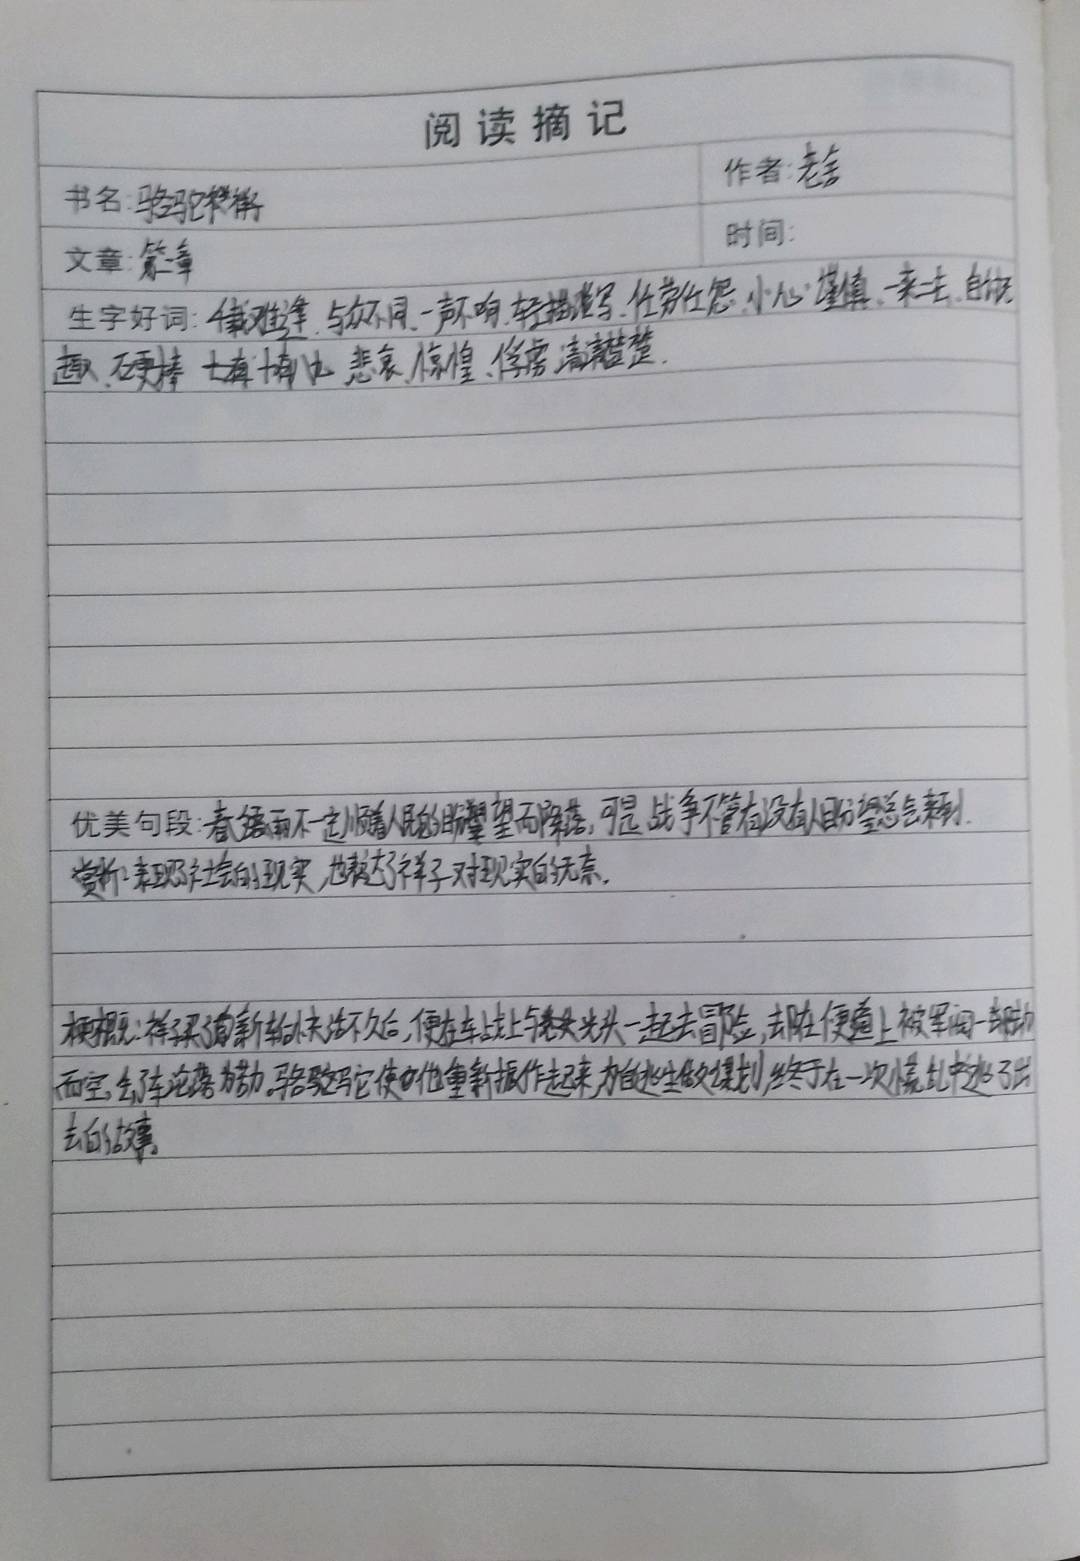 阅读摘记
书名:骆驼祥子
作者:老舍
文章:第二章
时间:
生字好词:千载难逢、与众不同、一声不响、轻描淡写、任劳任怨、小心谨慎、一来二去、自讨没
趣、硬棒 十有八九 悲哀、惊惶、俘虏 清清楚楚.
优美句段:春雨不一定顺着人民的盼望而降落,可是战争不管有没有人盼望总会来到.
赏析:表现了社会的现实,也表达了祥子对现实的无奈。
梗概:祥子买了新车快活不久后,便在车站上与光头一起去冒险,去时在便道上被军阀一劫
而空,骆驼使他重新振作起来,为自逃生做计划,终于在一次慌乱中逃了出
去的故事。